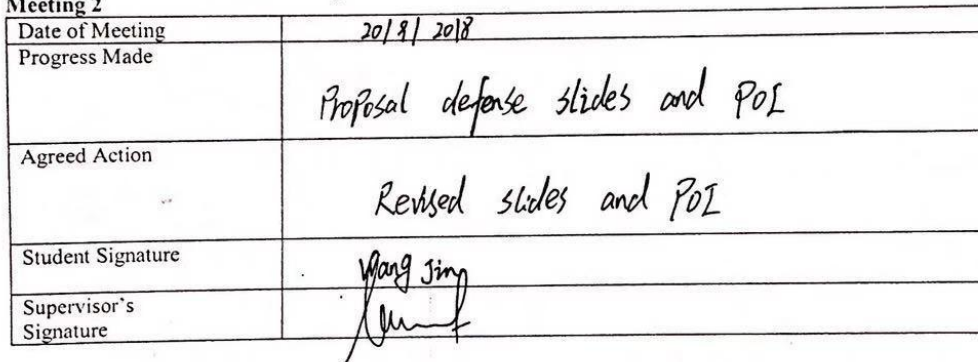 Meeting 2
Date of Meeting 20/8/2018
Progress Made
Proposal defense slides and PoI
Agreed Action
Revised slides and PoI
Student Signature
Wang Jing
Supervisor's
Signature